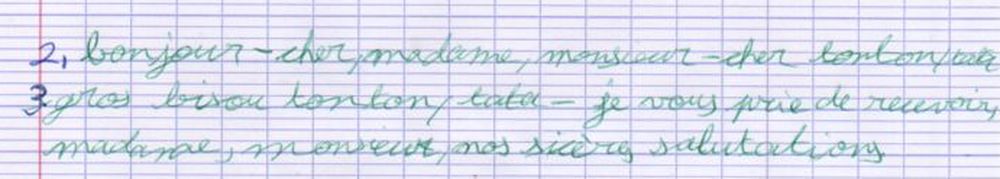 2, bonjour - cher, madame, monsieur - cher tonton/tata
3 gros bisou tonton/tata - je vous prie de recevoir,
madame, monsieur, nos sicèrs salutations